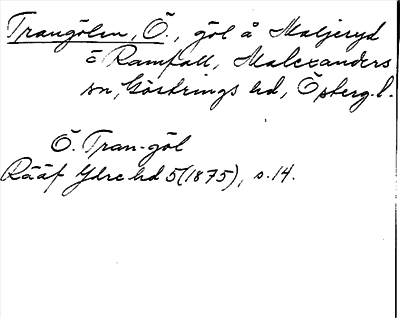 Trangölen, Ö., göl å Maljeryd
o Ramfall, Malexanders
sn, Göstrings hd, Östergl.
Ö. Tran-göl
Rääf Ydre hd 5(1875), s. 14.